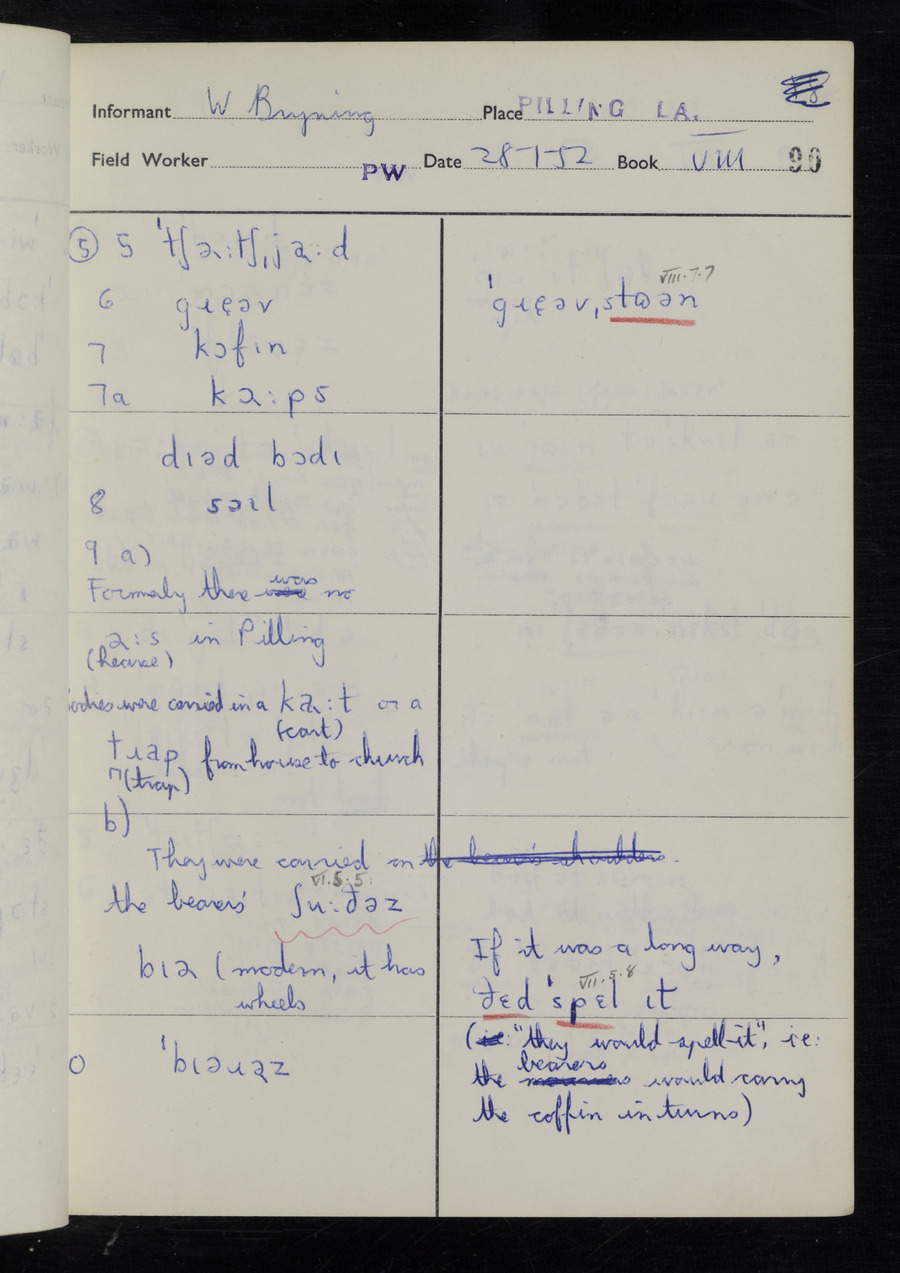 Informant W Bryning Place PILLING LA.
Field Worker PW Date 28-1-52 Book VIII 90
⑤ 5 ˈtʃɑ:tʃˌjɑ:d
6 gɹɛəv
7 kɔfin
7a kɑ:ps
dɪəd bɔdɪ
8 sɔɪl
9 a)
Formaly there was no
ɑ:s in Pilling
(hearse)
odies were carried in a kɑ:t or a
(cart)
tɹap from house to church
(trap)
b)
They were carried on the bearer's shoulders.
VI.5.5.
the bearers' ʃu:ðəz
bɪɑ (modern, it has
wheels
0 ˈbɪəɹəz
VIII.7.7
ˈgɹɛəvˌstɷən
If it was a long way,
VII.5.8
ðɛd ˈspɛl it
(ie: "they would spell-it", ie:
bearers
the would carry
the coffin in turns)